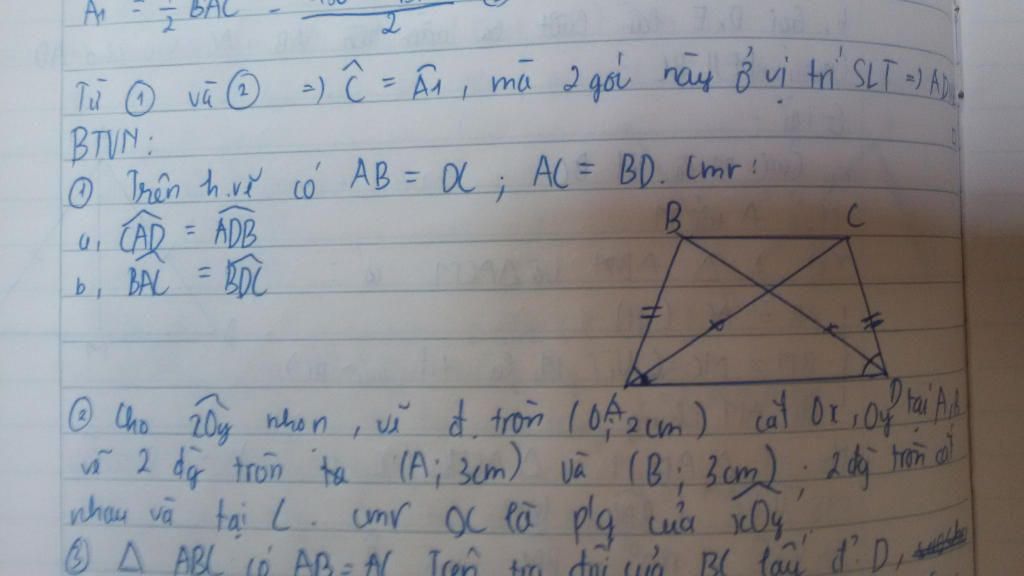 A1 = 1/2 BAC = 2 
Từ ① và ② => Ĉ = Â1, mà 2 gói này ở vị trí SLT => AD
BTVN:
① Trên h.vẽ có AB = DC ; AC = BD. Cmr:
a, CAD = ADB
b, BAC = BDC
B C
A D
② Cho xOy nhọn, vẽ đ. tròn (O; 2cm) cắt Ox, Oy tại A, B
vẽ 2 đg tròn ta (A; 3cm) và (B; 3cm); 2 đg tròn cắt
nhau và tại C. cmr OC là p'g của xOy
③ Δ ABC có AB = AC Trên tia đối của BC lấy đ' D,